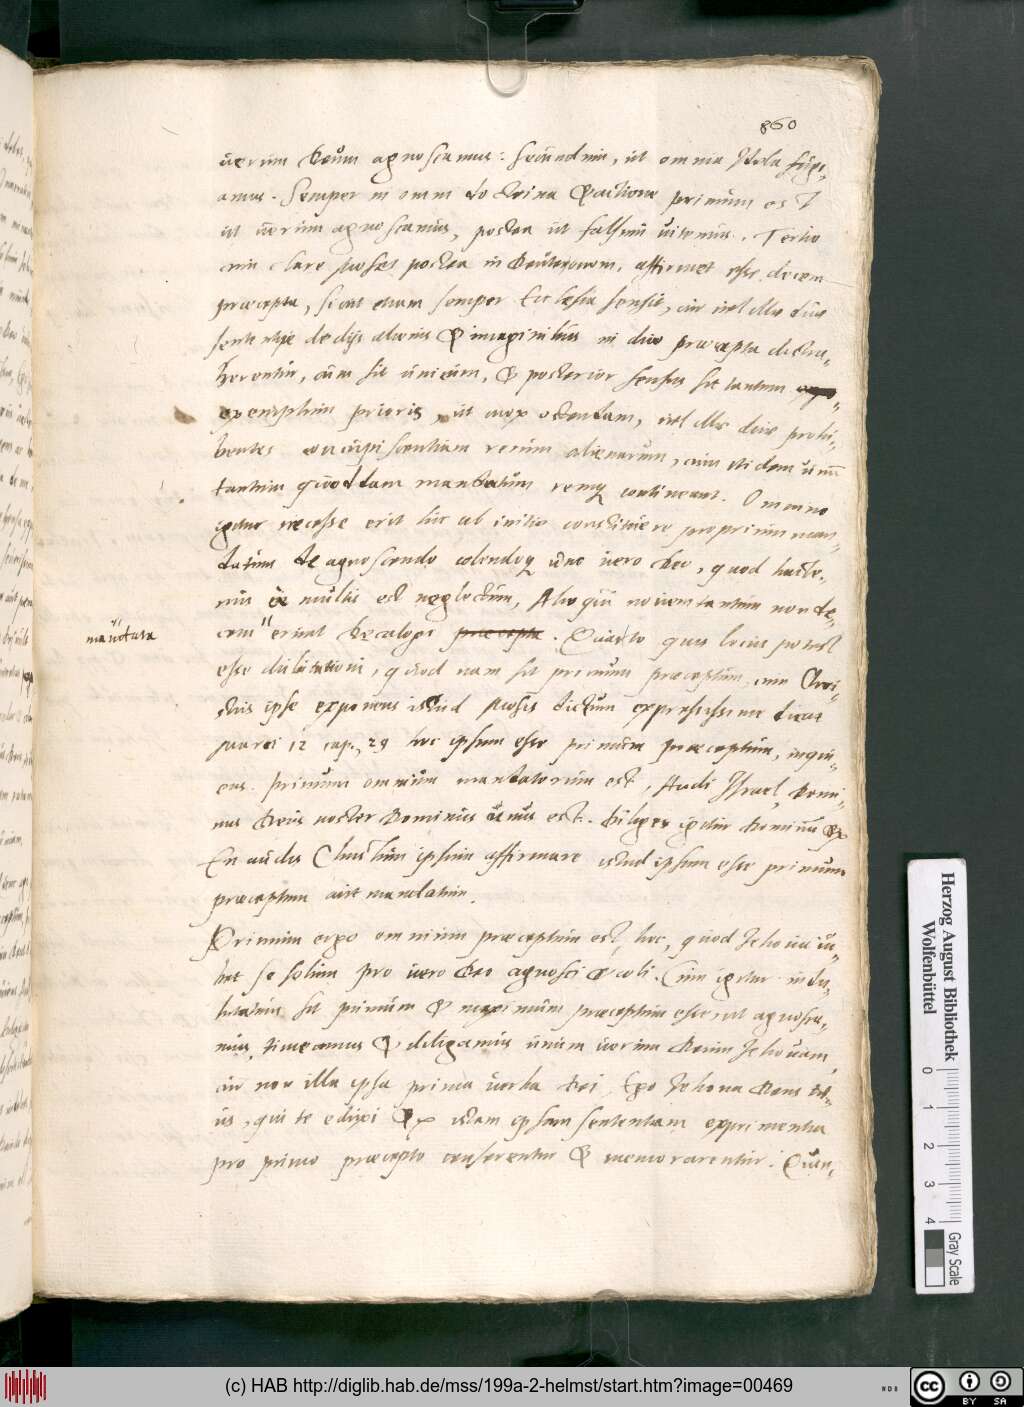 860
verum Deum agnoscamus: secundum, ut omnia Idola fugi-
amus. Semper in omni doctrina & actione primum est
ut verum agnoscamus, postea ut falsum vitemus. Tertio
cum clare Moses postea in Deuteronom. affirmet esse decem
præcepta, sicut etiam semper Ecclesia sensit, an vel illæ duæ
sententiæ de dijs alienis & imaginibus in duo præcepta distra-
herentur, cum sit unicum, & posterior sensus sit tantum
exemplum prioris, ut mox ostendam, vel illæ duæ prohi-
bentes concupiscentiam rerum alienarum, cum itidem unum
tantum quoddam mandatum remque contineant. Omnino
igitur necesse erit hic ab initio constituere proprium man-
datum de agnoscendo colendoque uno vero Deo, quod hacte-
nus a multis est neglectum, Alioqui novem tantum non de-
cem " erunt Decalogi præcepta. Quarto quis locus potest
" mandata
esse dubitationi, quodnam sit primum præceptum, cum Chri-
stus ipse exponens istud Mosis dictum expressissime dicat
Marci 12 cap. 29 hoc ipsum esse primum præceptum, inqui-
ens. Primum omnium mandatorum est, Audi Israel, Domi-
nus Deus noster Dominus unus est. Diliges igitur Dominum &c
En audis Christum ipsum affirmare istud ipsum esse primum
præceptum aut mandatum.
Primum ergo omnium præceptum est, hoc, quod Jehova iu-
bet se solum pro vero Deo agnosci & coli. Cum igitur indu-
bitatum sit primum & maximum præceptum esse ut agnosca-
mus, timeamus & diligamus unum verum Deum Jehovam,
an non illa ipsa prima verba Dei, Ego Jehova Deus tu-
us, qui te eduxi &c istam ipsam sententiam exprimentia
pro primo præcepto censerentur & memorarentur. Quan-
Herzog August Bibliothek
Wolfenbüttel
0 1 2 3 4
Gray Scale
(c) HAB http://diglib.hab.de/mss/199a-2-helmst/start.htm?image=00469
cc BY SA